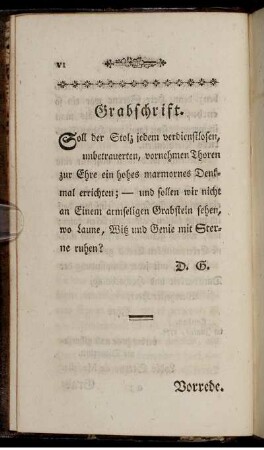 VI
Grabschrift.
Soll der Stolz jedem verdienstlosen,
unbetrauerten, vornehmen Thoren
zur Ehre ein hohes marmornes Denk-
mal errichten; — und sollen wir nicht
an Einem armseligen Grabstein sehen,
wo Laune, Witz und Genie mit Ster-
ne ruhen?
D. G.
Vorrede.